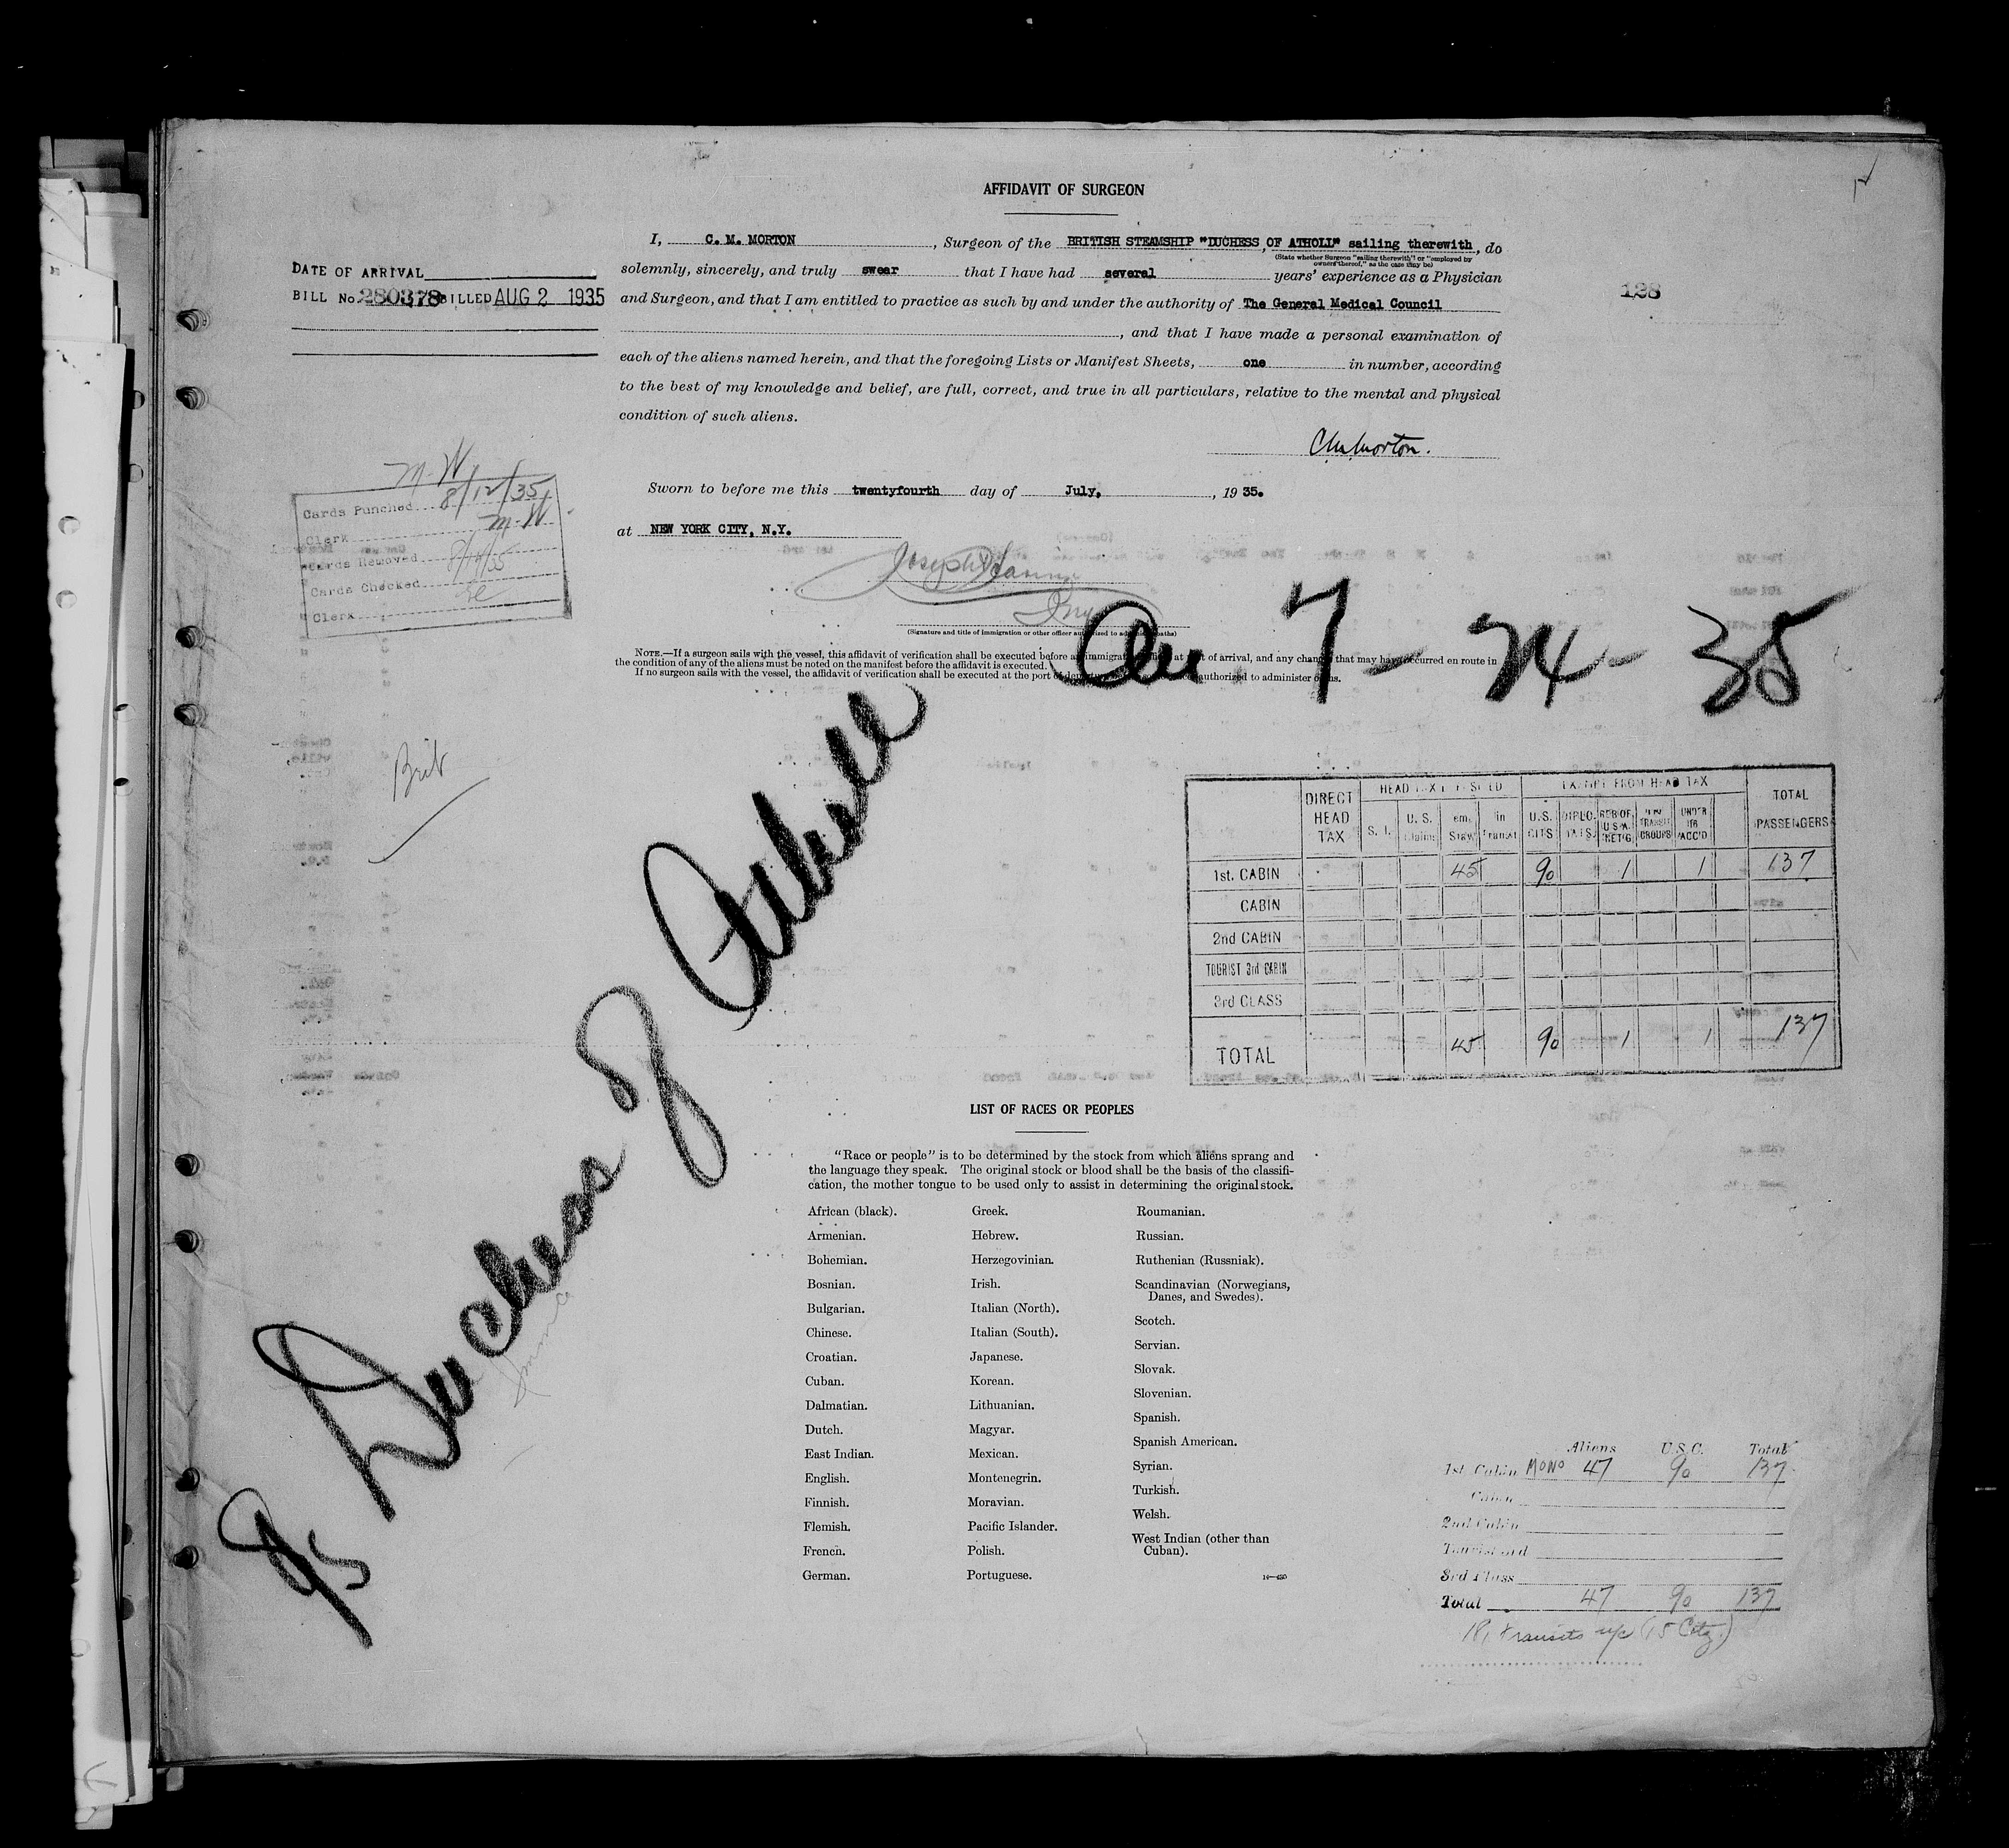 AFFIDAVIT OF SURGEON
I, C. M. MORTON, Surgeon of the BRITISH STEAMSHIP "DUCHESS OF ATHOLL" sailing therewith, do
(State whether Surgeon "sailing therewith" or "employed by
owners thereof," as the case may be)
solemnly, sincerely, and truly swear that I have had several years' experience as a Physician
and Surgeon, and that I am entitled to practice as such by and under the authority of The General Medical Council
, and that I have made a personal examination of
each of the aliens named herein, and that the foregoing Lists or Manifest Sheets, one in number, according
to the best of my knowledge and belief, are full, correct, and true in all particulars, relative to the mental and physical
condition of such aliens.
C M Morton.
Sworn to before me this twentyfourth day of July, , 19 35.
at NEW YORK CITY, N.Y.
(Signature and title of immigration or other officer authorized to administer oaths)
NOTE.—If a surgeon sails with the vessel, this affidavit of verification shall be executed before an immigration officer at port of arrival, and any changes that may have occurred en route in
the condition of any of the aliens must be noted on the manifest before the affidavit is executed.
If no surgeon sails with the vessel, the affidavit of verification shall be executed at the port of authorized to administer oaths.
DATE OF ARRIVAL
BILL No. 280378 BILLED AUG 2 1935
128
M-W
Cards Punched 8/12/35
Clerk M-W
Cards Removed
Cards Checked 8/14/35
Clerk
Brit
7-24-35
SS Duchess of Atholl
DIRECT HEAD TAX
TOTAL PASSENGERS
EXEMPT FROM HEAD TAX
S. I. U. S. in Transit U.S. CITS DIPLO. UNDER 16 ACC'D
1st. CABIN 45 90 1 1 137
CABIN
2nd CABIN
TOURIST 3rd CABIN
3rd CLASS
TOTAL 45 90 1 1 137
LIST OF RACES OR PEOPLES
"Race or people" is to be determined by the stock from which aliens sprang and
the language they speak. The original stock or blood shall be the basis of the classifi-
cation, the mother tongue to be used only to assist in determining the original stock.
African (black).
Armenian.
Bohemian.
Bosnian.
Bulgarian.
Chinese.
Croatian.
Cuban.
Dalmatian.
Dutch.
East Indian.
English.
Finnish.
Flemish.
French.
German.
Greek.
Hebrew.
Herzegovinian.
Irish.
Italian (North).
Italian (South).
Japanese.
Korean.
Lithuanian.
Magyar.
Mexican.
Montenegrin.
Moravian.
Pacific Islander.
Polish.
Portuguese.
Roumanian.
Russian.
Ruthenian (Russniak).
Scandinavian (Norwegians,
Danes, and Swedes).
Scotch.
Servian.
Slovak.
Slovenian.
Spanish.
Spanish American.
Syrian.
Turkish.
Welsh.
West Indian (other than
Cuban).
Aliens U.S.C. Total
1st Cabin MONO 47 90 137
Cabin
2nd Cabin
Tourist 3rd
3rd Class
Total 47 90 137
transits